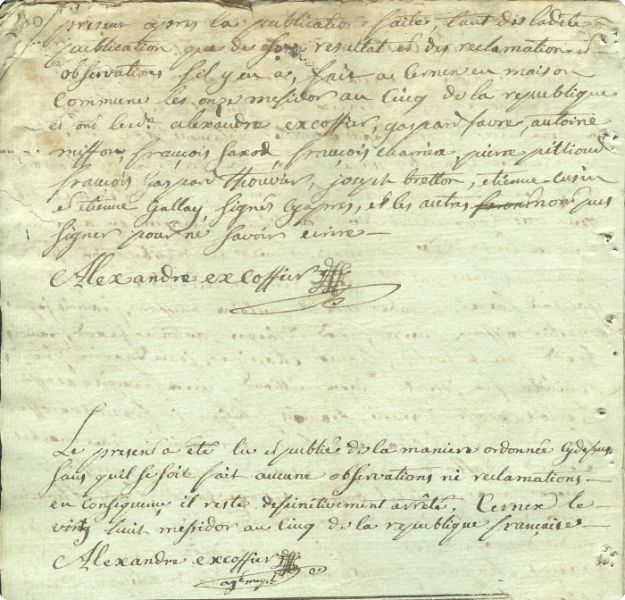 present après la publication faite tant de ladite
publication que de son resultat et des reclamations et
observations s'il y en a, fait a Cernex en maison
Commune les onze messidor an Cinq de la republique
et ont led. alexandre excoffier, gaspard favre, antoine
miffon, françois saxod, françois charriere, pierre pillioud
françois Gaspar Thouvier, joseph bretton, etienne
et etienne Gallay, signés cyapres, et les autres n'ont pas
signer pour ne savoir écrire —
Alexandre excoffier
Le present a été lu et publié de la maniere ordonnée cydessus
sans qu'il se soit fait aucune observations ni reclamations —
en Consequence il reste definitivement arrêté, Cernex le
vingt huit messidor an Cinq de la republique française —
Alexandre excoffier
agt mupl